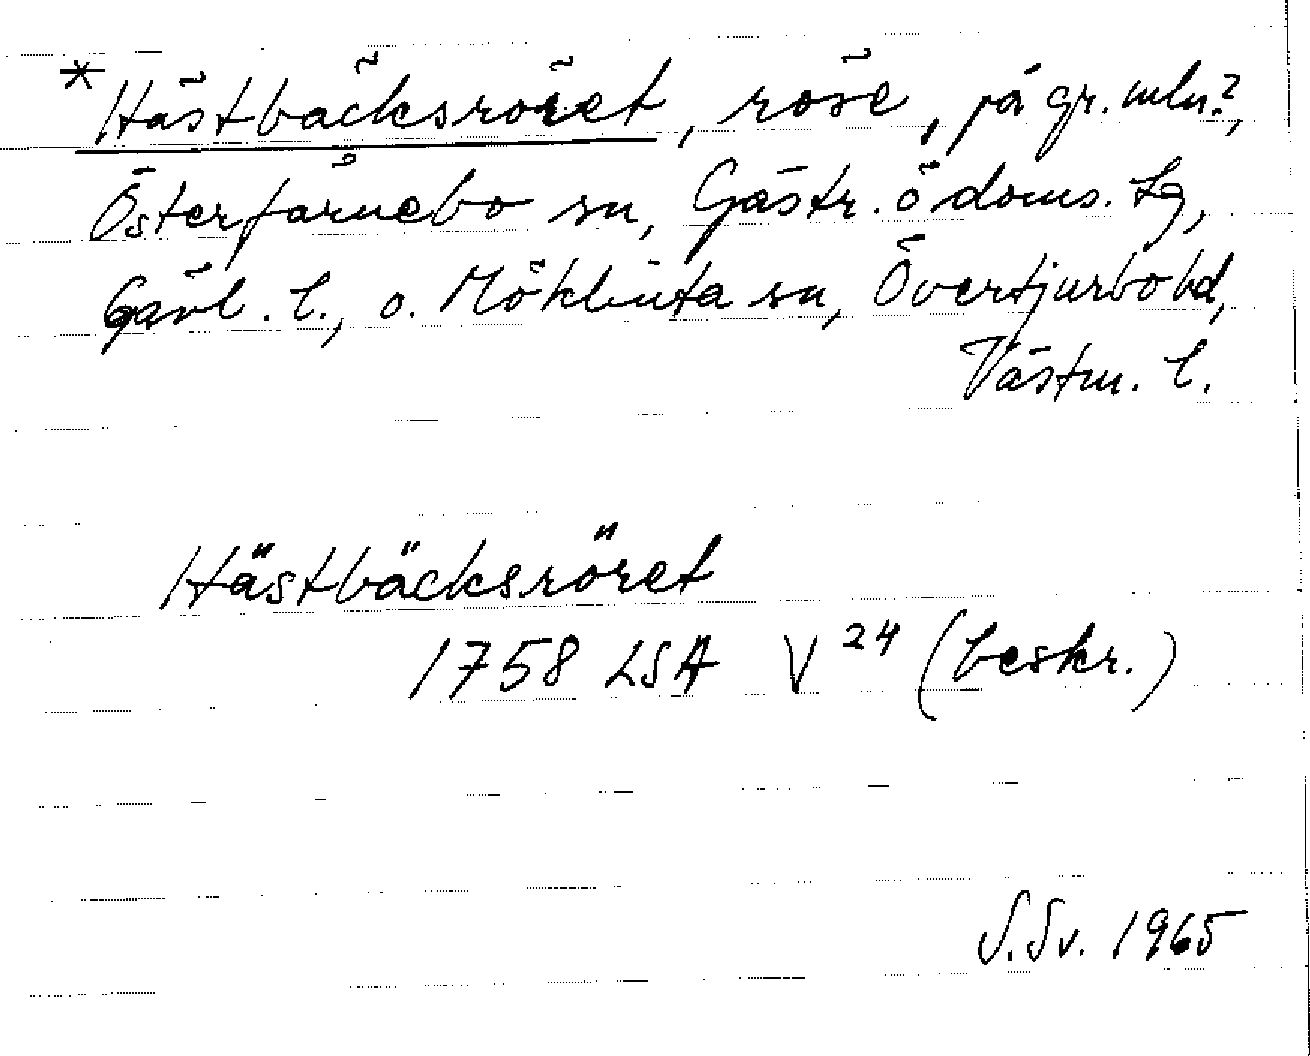 *Hästbäcksröret, röse, på gr. mln?,
Österfärnebo sn, Gästr. ö doms. tg,
Gävl. l., o. Möklinta sn, Övertjurbo hd,
Västm. l.
Hästbäcksröret
1758 LSA V 24 (beskr.)
S. Sv. 1965